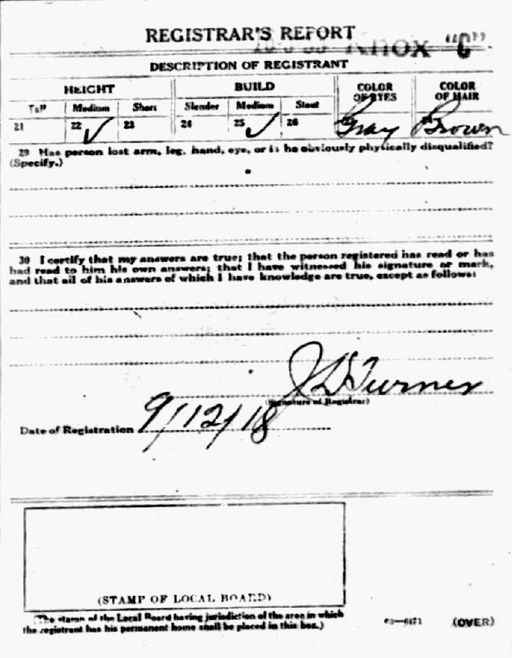 REGISTRAR'S REPORT
Knox "C"
DESCRIPTION OF REGISTRANT
HEIGHT BUILD COLOR OF EYES COLOR OF HAIR
Tall Medium Short Slender Medium Stout
21 22 ✓ 23 24 25 ✓ 26 Gray Brown
29 Has person lost arm, leg, hand, eye, or is he obviously physically disqualified?
(Specify.)
30 I certify that my answers are true; that the person registered has read or has
had read to him his own answers; that I have witnessed his signature or mark,
and that all of his answers of which I have knowledge are true, except as follows:
J D Turner
(Signature of Registrar)
Date of Registration 9/12/18
(STAMP OF LOCAL BOARD)
(The stamp of the Local Board having jurisdiction of the area in which
the registrant has his permanent home shall be placed in this box.)
(OVER)